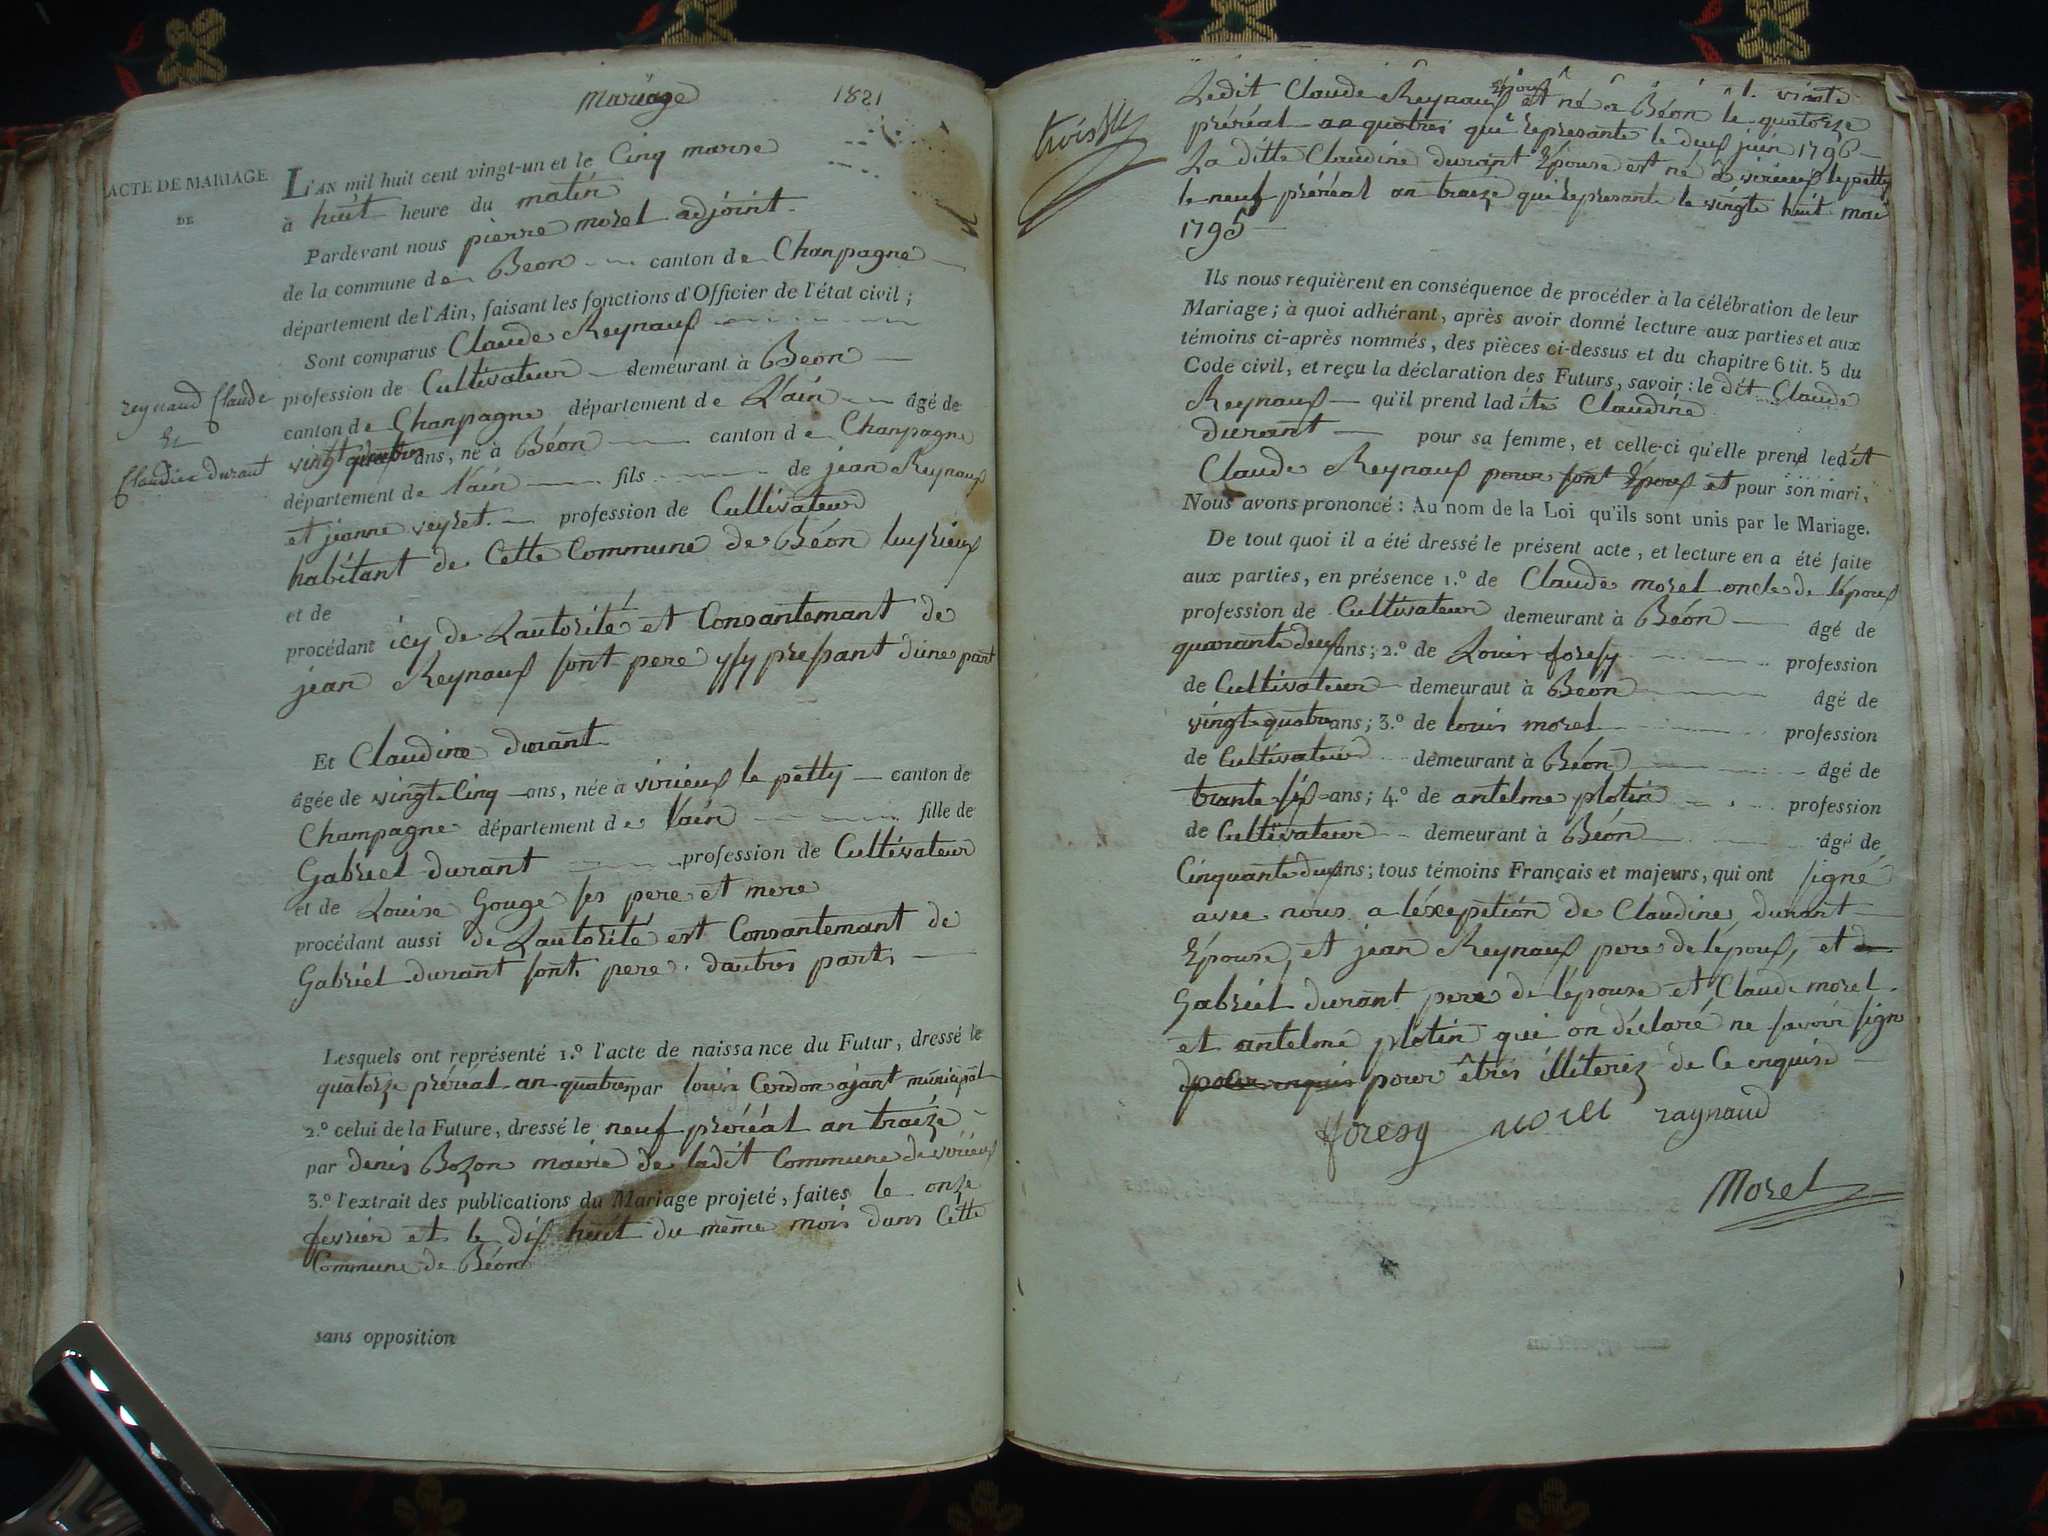 mariage 1821
ACTE DE MARIAGE
DE
reynaud Claude
Et
Claudine durant
L'AN mil huit cent vingt-un et le Cinq marse
à huit heure du matin
Pardevant nous pierre morel adjoint
de la commune de Béon canton de Chanpagne
département de l'Ain, faisant les fonctions d'Officier de l'état civil ;
Sont comparus Claude Reynaux
profession de Cultivateur demeurant à Béon
canton de Chanpagne département de L'ain âgé de
vingt quatres ans, né à Béon canton de Chanpagne
département de l'ain fils de jean Reynaux
et jeanne veyret profession de Cultivateur
habitant de Cette Commune de Béon luyrieux
et de
procédant icy de L'autorité et Consantemant de
jean Reynaux sont pere ysy pressant d'une part
Et Claudine durant
âgée de vingt Cinq ans, née à virieux le petty canton de
Champagne département de l'ain fille de
Gabriel durant profession de Cultivateur
et de Louise Gouge ses pere et mere
procédant aussi de L'autorité est Consantemant de
Gabriel durant sont pere d'autres parts
Lesquels ont représenté 1.º l'acte de naissance du Futur, dressé le
quatorze préréal an quatres par louis Cerdon ajant municipal
2.º celui de la Future, dressé le neuf préréal an traize
par denis Bozon mairie de ladit Commune de virieux
3.º l'extrait des publications du Mariage projeté, faites le onze
fevrier et le dix huit du même mois dans Cette
Commune de Béon
sans opposition
Ledit Claude Reynaux Epoux et né à Béon le quatorze
préréal an quatres qui represante le deux juin 1796
La ditte Claudine durant Epouse est né à virieux le petty
le neuf préréal an traize qui represante le vingte huit mai
1795
Ils nous requièrent en conséquence de procéder à la célébration de leur
Mariage ; à quoi adhérant, après avoir donné lecture aux parties et aux
témoins ci-après nommés, des pièces ci-dessus et du chapitre 6 tit. 5 du
Code civil, et reçu la déclaration des Futurs, savoir : le dit Claude
Reynaux qu'il prend ladite Claudine
durant pour sa femme, et celle-ci qu'elle prend ledit
Claude Reynaux pour sont Epoux et pour son mari,
Nous avons prononcé : Au nom de la Loi qu'ils sont unis par le Mariage.
De tout quoi il a été dressé le présent acte, et lecture en a été faite
aux parties, en présence 1.º de Claude morel oncle de l'époux
profession de Cultivateur demeurant à Béon âgé de
quarante deux ans ; 2.º de Louis foresy profession
de Cultivateur demeuraut à Béon âgé de
vingt quatre ans ; 3.º de louis morel profession
de Cultivateur demeurant à Béon âgé de
trante six ans ; 4.º de antelme plotin profession
de Cultivateur demeurant à Béon âgé de
Cinquante deux ans ; tous témoins Français et majeurs, qui ont signé
avec nous a l'éxepition de Claudine durant
Epouse, et jean Reynaux pere de l'époux, et
Gabriel durant pere de l'épouse et Claude morel
et antelme plotin qui on déclaré ne savoir signe
pour êtres illiterez de Ce enquise
foresy morel raynaud
Morel